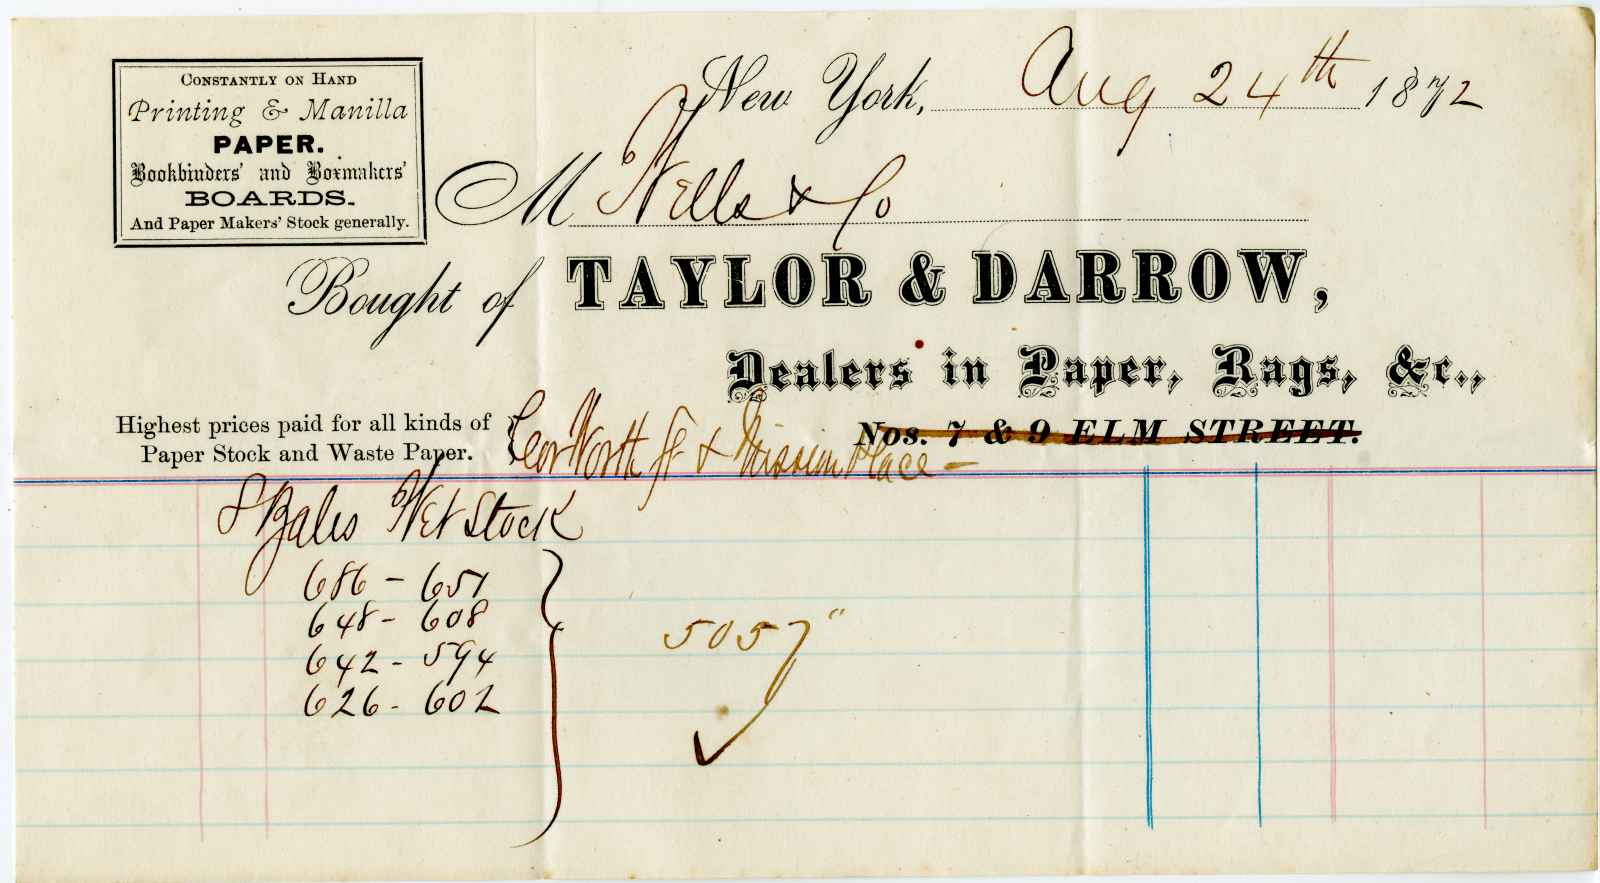 CONSTANTLY ON HAND
Printing & Manilla
PAPER.
Bookbinders' and Boxmakers'
BOARDS.
And Paper Makers' Stock generally.
New York, Aug 24th 1872
M Wells & Co
Bought of TAYLOR & DARROW,
Dealers in Paper, Rags, &c.,
Nos. 7 & 9 ELM STREET.
Highest prices paid for all kinds of
Paper Stock and Waste Paper.
Cor Worth St & Mission Place -
8 Bales Wet Stock
686 - 651
648 - 608
642 - 594
626 - 602
5057"